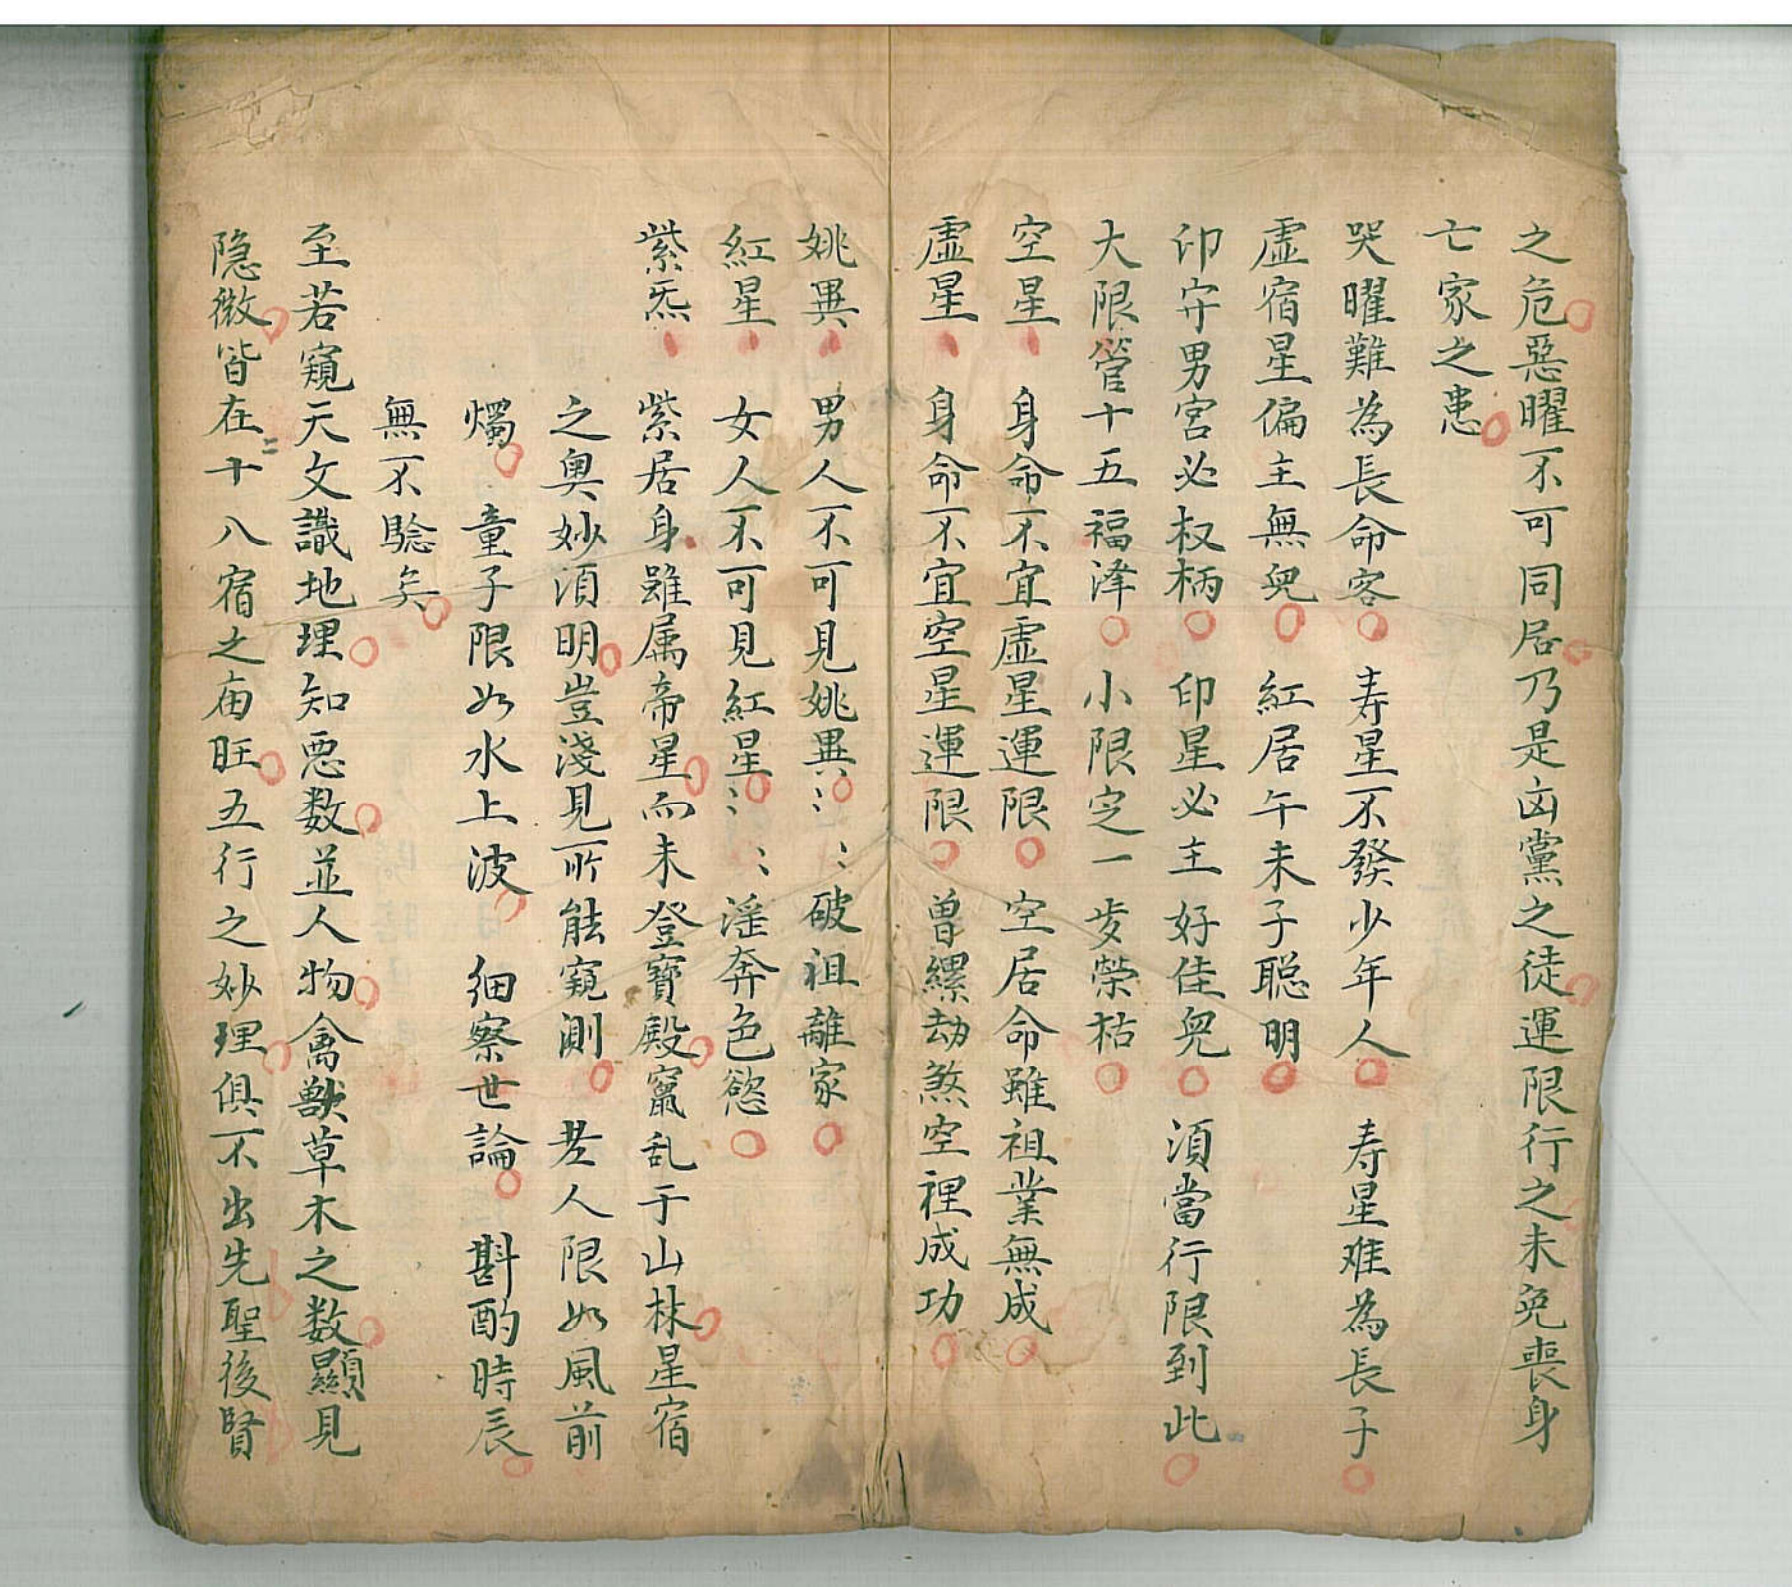 之危惡曜不可同居乃是凶黨之徒運限行之未免喪身
亡家之患
哭曜難為長命客 寿星不發少年人 寿星难為長子
虚宿星偏主無兒 紅居午未子聪明
印守男宮必权柄 印星必主好佳兒 須當行限到此
大限管十五福泽 小限定一步榮枯
空星 身命不宜虚星運限 空居命雖祖業無成
虚星 身命不宜空星運限 曾縲劫煞空裡成功
姚異 男人不可見姚異〻〻破祖離家
紅星 女人不可見紅星〻〻淫奔色慾
紫炁 紫居身雖属帝星而未登寶殿竄乱于山林星宿
之奧妙須明豈淺見所能窺測 老人限如風前
燭 童子限如水上波 细察世論 斟酌時辰
無不驗矣
至若窺天文識地理知悪数並人物禽獸草木之数顯見
隐微皆在十八宿之庙旺五行之妙理俱不出先聖後賢